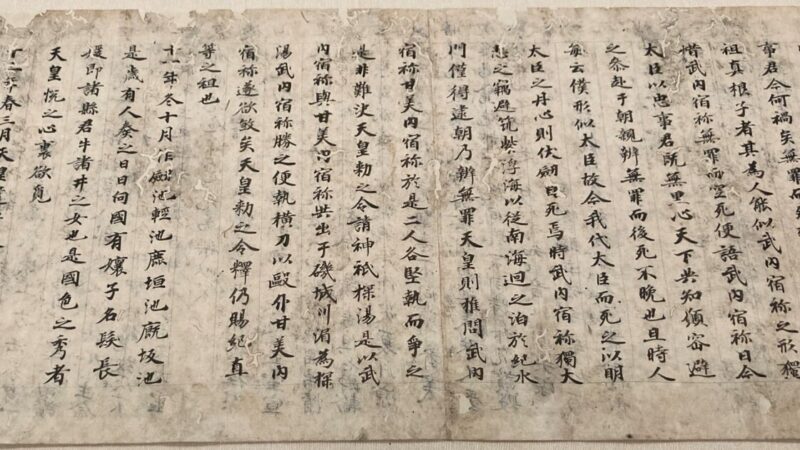 事君今何禍矣無罪而
祖真根子者其為人能似武内宿祢之形獨
惜武内宿祢無罪而空死便語武内宿祢曰今
大臣以忠事君既無黒心天下共知願密避
之参赴于朝親辨無罪而後死不晩也且時人
毎云僕形似大臣故今我代大臣而死之以明
大臣之丹心則伏劔自死焉時武内宿祢獨大
悲之竊避筑紫浮海以従南海迴之泊於紀水
門僅得逮朝乃辨無罪天皇則推問武内
宿祢甘美内宿祢於是二人各堅執而争之
是非難决天皇勅之令請神祇探湯是以武
内宿祢與甘美内宿祢共出于磯城川湄為探
湯武内宿祢勝之便執横刀以毆仆甘美内
宿祢遂欲煞矣天皇勅之令釋仍賜紀直
等之祖也
十一年冬十月作劔池軽池鹿垣池厩坂池
是歳有人奏之曰日向國有孃子名髮長
媛即諸縣君牛諸井之女也是國色之秀者
天皇悦之心裏欲覓
年春三月天皇